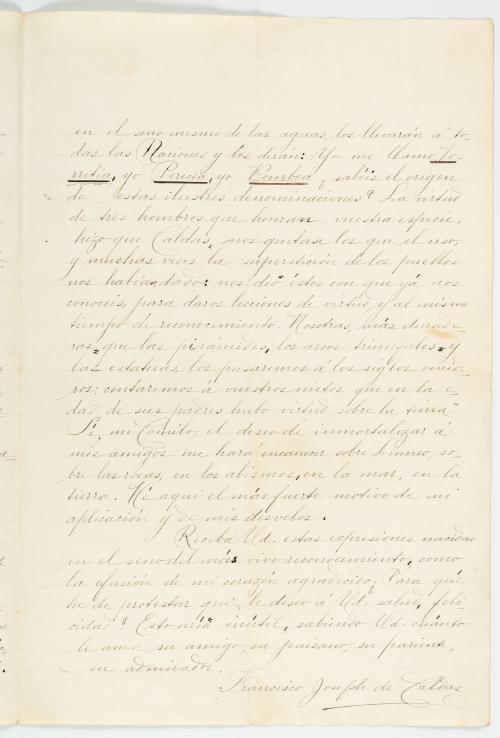 en el seno mismo de las aguas, los llevarán á to-
das las Naciones y los dirán: Yo me llamo To-
rretia, yo Peresia, yo Pombea ¿sabéis el origen
de estas ilustres denominaciones? La virtud
de tres hombres que honran vuestra especie,
hizo que Caldas, nos quitase los que el uso,
y muchas veces la superstición de los pueblos
nos habían dado: nos dió éstos con que yá nos
conoceis, para daros lecciones de virtud y al mismo
tiempo de reconocimiento. Nosotras, más durade-
ras que las pirámides, los arcos triunfales y
las estatuas, los pasaremos á los siglos venide-
ros: contaremos á vuestros nietos que en la e-
dad de sus padres hubo virtud sobre la tierra."
Sí, mi Camilo, el deseo de inmortalizar á
mis amigos me hará encanecer sobre Linneo, so-
bre las rocas, en los abismos, en la mar, en la
tierra. Hé aquí el más fuerte motivo de mi
aplicación y de mis desvelos.
Reciba Ud. estas expresiones nacidas
en el seno del más vivo reconocimiento, como
la efusión de mi corazón agradecido. ¿Para qué
he de protestar que le deseo á Ud. salud, feli-
cidad? Esto sería inútil, sabiendo Ud. cuánto
le ama su amigo, su paisano, su pariente,
su admirador.
Francisco Joseph de Caldas